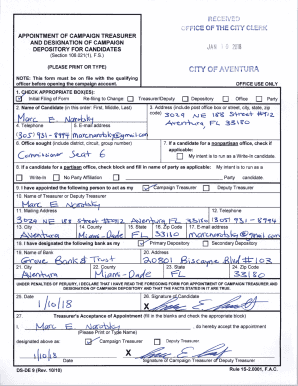 RECEIVED
OFFICE OF THE CITY CLERK
JAN 10 2018
CITY OF AVENTURA
APPOINTMENT OF CAMPAIGN TREASURER
AND DESIGNATION OF CAMPAIGN
DEPOSITORY FOR CANDIDATES
(Section 106.021(1), F.S.)
(PLEASE PRINT OR TYPE)
NOTE: This form must be on file with the qualifying
officer before opening the campaign account.
OFFICE USE ONLY
1. CHECK APPROPRIATE BOX(ES):
Initial Filing of Form Re-filing to Change: Treasurer/Deputy Depository Office Party
2. Name of Candidate (in this order: First, Middle, Last)
Marc E. Narotsky
3. Address (include post office box or street, city, state, zip
code)
3029 NE 188 Street #912
Aventura, FL 33180
4. Telephone
(305) 931-8994
5. E-mail address
marcnarotsky@gmail.com
6. Office sought (include district, circuit, group number)
Commission Seat 6
7. If a candidate for a nonpartisan office, check if
applicable:
My intent is to run as a Write-In candidate.
8. If a candidate for a partisan office, check block and fill in name of party as applicable: My intent is to run as a
Write-In No Party Affiliation Party candidate.
9. I have appointed the following person to act as my Campaign Treasurer Deputy Treasurer
10. Name of Treasurer or Deputy Treasurer
Marc E Narotsky
11. Mailing Address
3029 NE 188 Street #912 Aventura FL 33180
12. Telephone
(305) 931-8994
13. City
Aventura
14. County
Miami-Dade
15. State
FL
16. Zip Code
33180
17. E-mail address
marcnarotsky@gmail.com
18. I have designated the following bank as my Primary Depository Secondary Depository
19. Name of Bank
Grove Bank & Trust
20. Address
20801 Biscayne Blvd #103
21. City
Aventura
22. County
Miami-Dade
23. State
FL
24. Zip Code
33180
UNDER PENALTIES OF PERJURY, I DECLARE THAT I HAVE READ THE FOREGOING FORM FOR APPOINTMENT OF CAMPAIGN TREASURER AND
DESIGNATION OF CAMPAIGN DEPOSITORY AND THAT THE FACTS STATED IN IT ARE TRUE.
25. Date
1/10/18
26. Signature of Candidate
X
27. Treasurer's Acceptance of Appointment (fill in the blanks and check the appropriate block)
I, Marc E. Narotsky, do hereby accept the appointment
(Please Print or Type Name)
designated above as: Campaign Treasurer Deputy Treasurer
1/10/18
X
Date
Signature of Campaign Treasurer or Deputy Treasurer
DS-DE 9 (Rev. 10/10)
Rule 1S-2.0001, F.A.C.